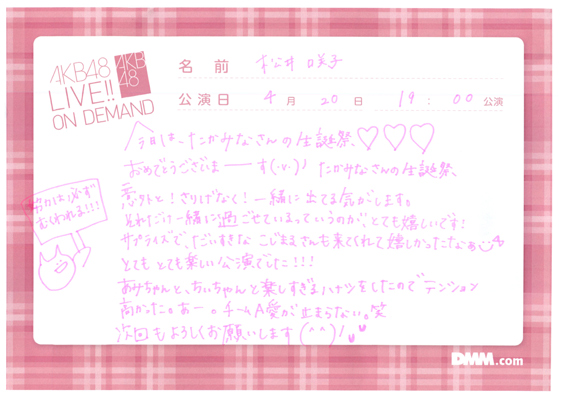 AKB48
LIVE!!
ON DEMAND
AKB
48
名 前 松井 咲子
公演日 4 月 20 日 19 : 00 公演
今日は、たかみなさんの生誕祭、♡♡♡
おめでとうございまーーす(・v・)ノ たかみなさんの生誕祭、
意外と!さりげなく!一緒に出てる気がします。
それだけ一緒に過ごせているっていうのが、とても嬉しいです!
サプライズで、だいすきな こじまさんも来てくれて嬉しかったなぁ
とても とても楽しい公演でした!!!
あみちゃんと、ちぃちゃんと楽しすぎるハナシをしたので テンション
高かった。あー。チームA愛が止まらない。笑
次回もよろしくお願いします(^^)!
努力は必ず
むくわれる!!!
DMM.com